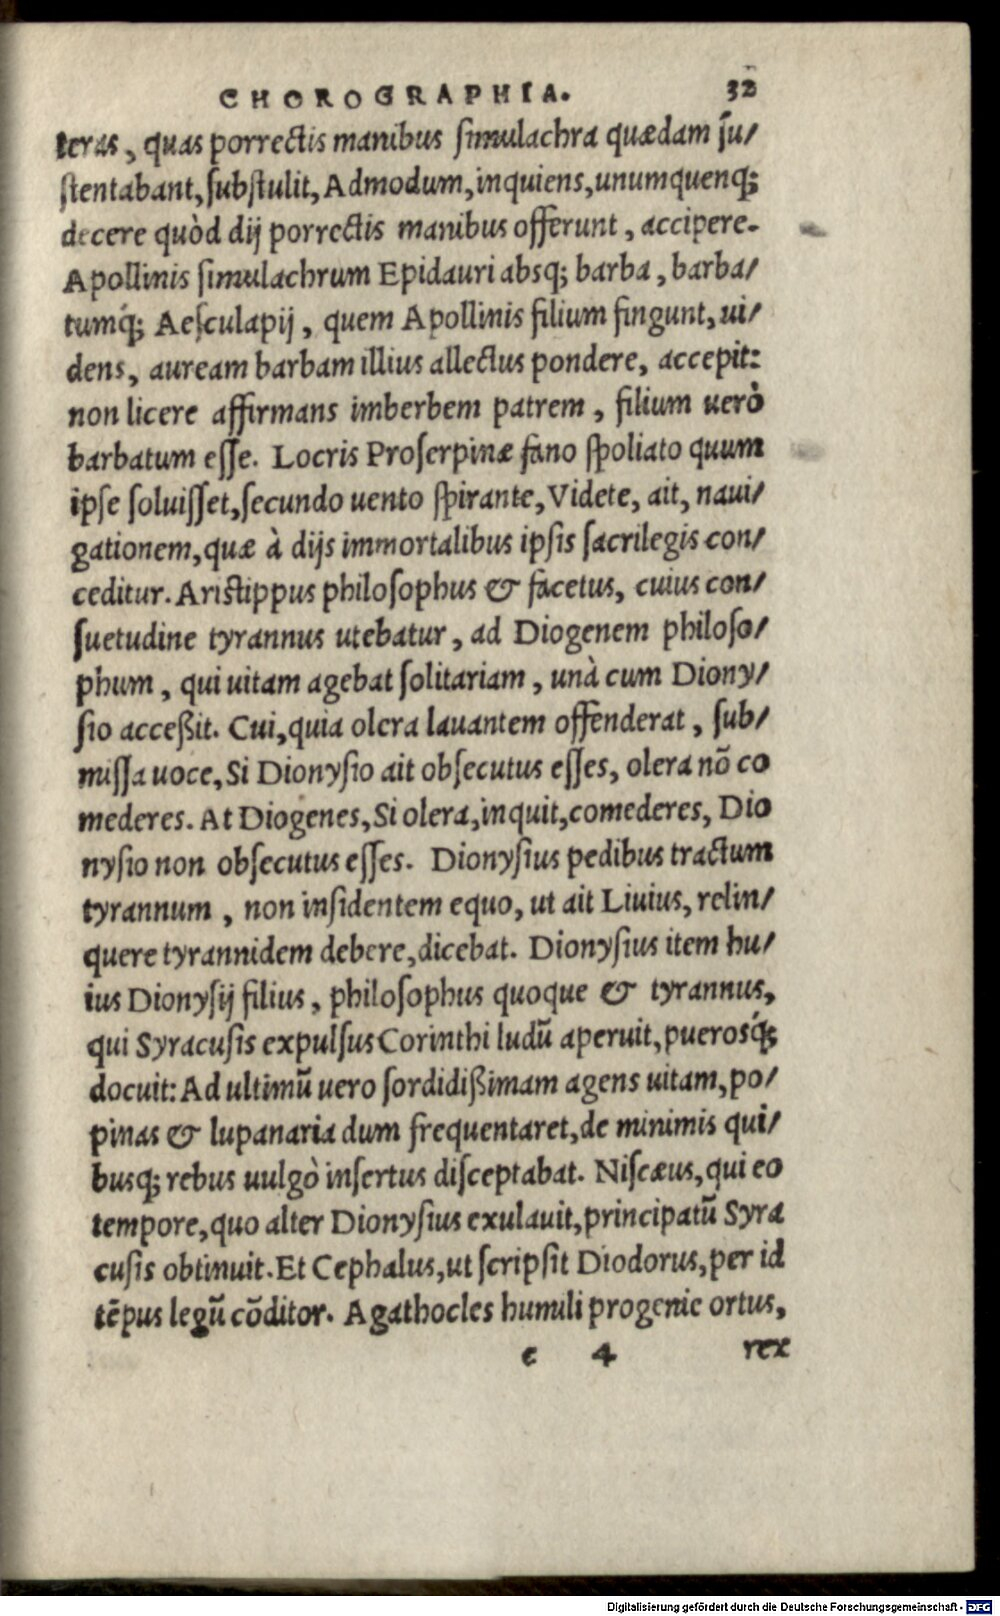 CHOROGRAPHIA. 32
teras, quas porrectis manibus simulachra quædam su/
stentabant, substulit, Admodum, inquiens, unumquenq;
decere quòd dij porrectis manibus offerunt, accipere.
Apollinis simulachrum Epidauri absq; barba, barba/
tumq́; Aesculapij, quem Apollinis filium fingunt, ui/
dens, auream barbam illius allectus pondere, accepit:
non licere affirmans imberbem patrem, filium uerò
barbatum esse. Locris Proserpinæ fano spoliato quum
ipse soluisset, secundo uento spirante, Videte, ait, naui/
gationem, quæ à dijs immortalibus ipsis sacrilegis con/
ceditur. Aristippus philosophus & facetus, cuius con/
suetudine tyrannus utebatur, ad Diogenem philoso/
phum, qui uitam agebat solitariam, unà cum Diony/
sio acceßit. Cui, quia olera lauantem offenderat, sub/
missa uoce, Si Dionysio ait obsecutus esses, olera nõ co
mederes. At Diogenes, Si olera, inquit, comederes, Dio
nysio non obsecutus esses. Dionysius pedibus tractum
tyrannum, non insidentem equo, ut ait Liuius, relin/
quere tyrannidem debere, dicebat. Dionysius item hu/
ius Dionysij filius, philosophus quoque & tyrannus,
qui Syracusis expulsus Corinthi ludũ aperuit, puerosq́;
docuit: Ad ultimũ uero sordidißimam agens uitam, po/
pinas & lupanaria dum frequentaret, de minimis qui/
busq; rebus uulgò insertus disceptabat. Nisæus, qui eo
tempore, quo alter Dionysius exulauit, principatũ Syra
cusis obtinuit. Et Cephalus, ut scripsit Diodorus, per id
tẽpus legũ cõditor. Agathocles humili progenie ortus,
e 4 rex
Digitalisierung gefördert durch die Deutsche Forschungsgemeinschaft - DFG